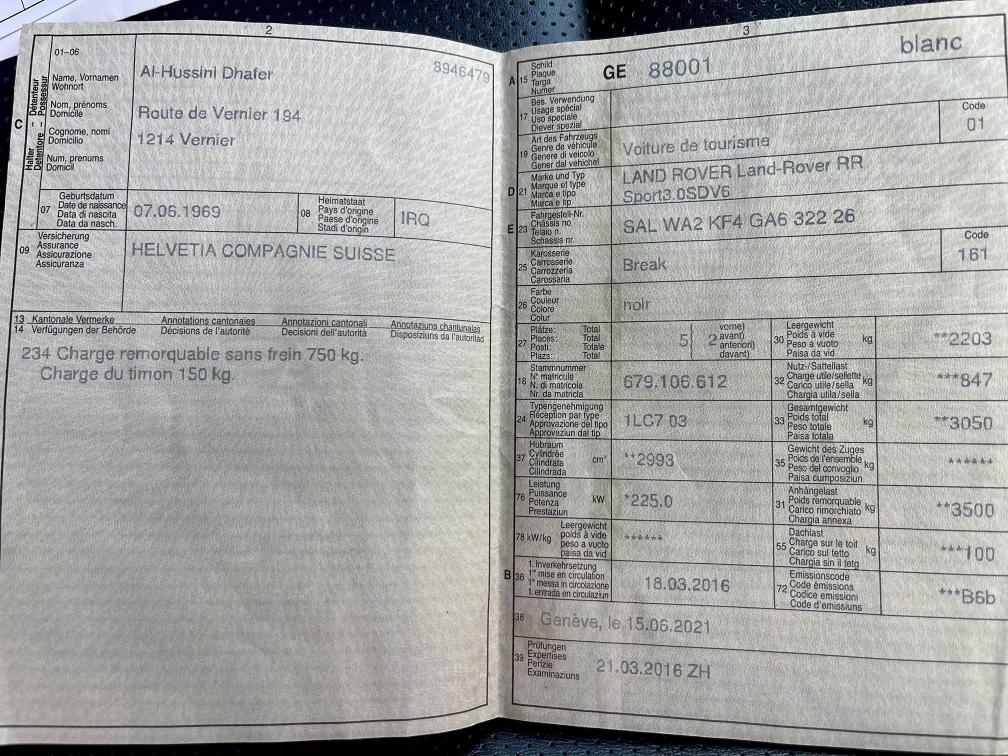 2
01-06
Name, Vornamen
Wohnort
Nom, prénoms
Domicile
Cognome, nomi
Domicilio
Num, prenums
Domicil
C
Halter – Détenteur
Detentore – Possessur
Al-Hussini Dhafer
8946479
Route de Vernier 194
1214 Vernier
07
Geburtsdatum
Date de naissance
Data di nascita
Data da nasch.
07.06.1969
08
Heimatstaat
Pays d'origine
Paese d'origine
Stadi d'origin
IRQ
09
Versicherung
Assurance
Assicurazione
Assicuranza
HELVETIA COMPAGNIE SUISSE
13 Kantonale Vermerke Annotations cantonales Annotazioni cantonali Annotaziuns chantunalas
14 Verfügungen der Behörde Décisions de l'autorité Decisioni dell'autorità Disposiziuns da l'autoritad
234 Charge remorquable sans frein 750 kg.
Charge du timon 150 kg.
3
A 15
Schild
Plaque
Targa
Numer
GE 88001
blanc
17
Bes. Verwendung
Usage spécial
Uso speciale
Diever spezial
19
Art des Fahrzeugs
Genre de véhicule
Genere di veicolo
Gener dal vehichel
Voiture de tourisme
Code
01
D 21
Marke und Typ
Marque et type
Marca e tipo
Marca e tip
LAND ROVER Land-Rover RR
Sport3.0SDV6
E 23
Fahrgestell-Nr.
Châssis no
Telaio n.
Schassis nr.
SAL WA2 KF4 GA6 322 26
25
Karosserie
Carrosserie
Carrozzeria
Carossaria
Break
Code
161
26
Farbe
Couleur
Colore
Colur
noir
27
Plätze: Total
Places: Total
Posti: Totale
Plazs: Total
5
2
vorne)
avant)
anteriori)
davant)
30
Leergewicht
Poids à vide
Peso a vuoto
Paisa da vid
kg
**2203
18
Stammnummer
N° matricule
N. di matricola
Nr. da matricla
679.106.612
32
Nutz-/Sattellast
Charge utile/sellette
Carico utile/sella
Chargia utila/sella
kg
***847
24
Typengenehmigung
Réception par type
Approvazione del tipo
Approvaziun dal tip
1LC7 03
33
Gesamtgewicht
Poids total
Peso totale
Paisa totala
kg
**3050
37
Hubraum
Cylindrée
Cilindrata
Cilindrada
cm³
**2993
35
Gewicht des Zuges
Poids de l'ensemble
Peso del convoglio
Paisa cumposiziun
kg
******
76
Leistung
Puissance
Potenza
Prestaziun
kW
*225.0
31
Anhängelast
Poids remorquable
Carico rimorchiato
Chargia annexa
kg
**3500
78 kW/kg
Leergewicht
poids à vide
peso a vuoto
paisa da vid
******
55
Dachlast
Charge sur le toit
Carico sul tetto
Chargia sin il tetg
kg
***100
B 36
1. Inverkehrsetzung
1re mise en circulation
1a messa in circolazione
1. entrada en circulaziun
18.03.2016
72
Emissionscode
Code émissions
Codice emissioni
Code d'emissiuns
***B6b
38
Genève, le 15.06.2021
39
Prüfungen
Expertises
Perizie
Examinaziuns
21.03.2016 ZH